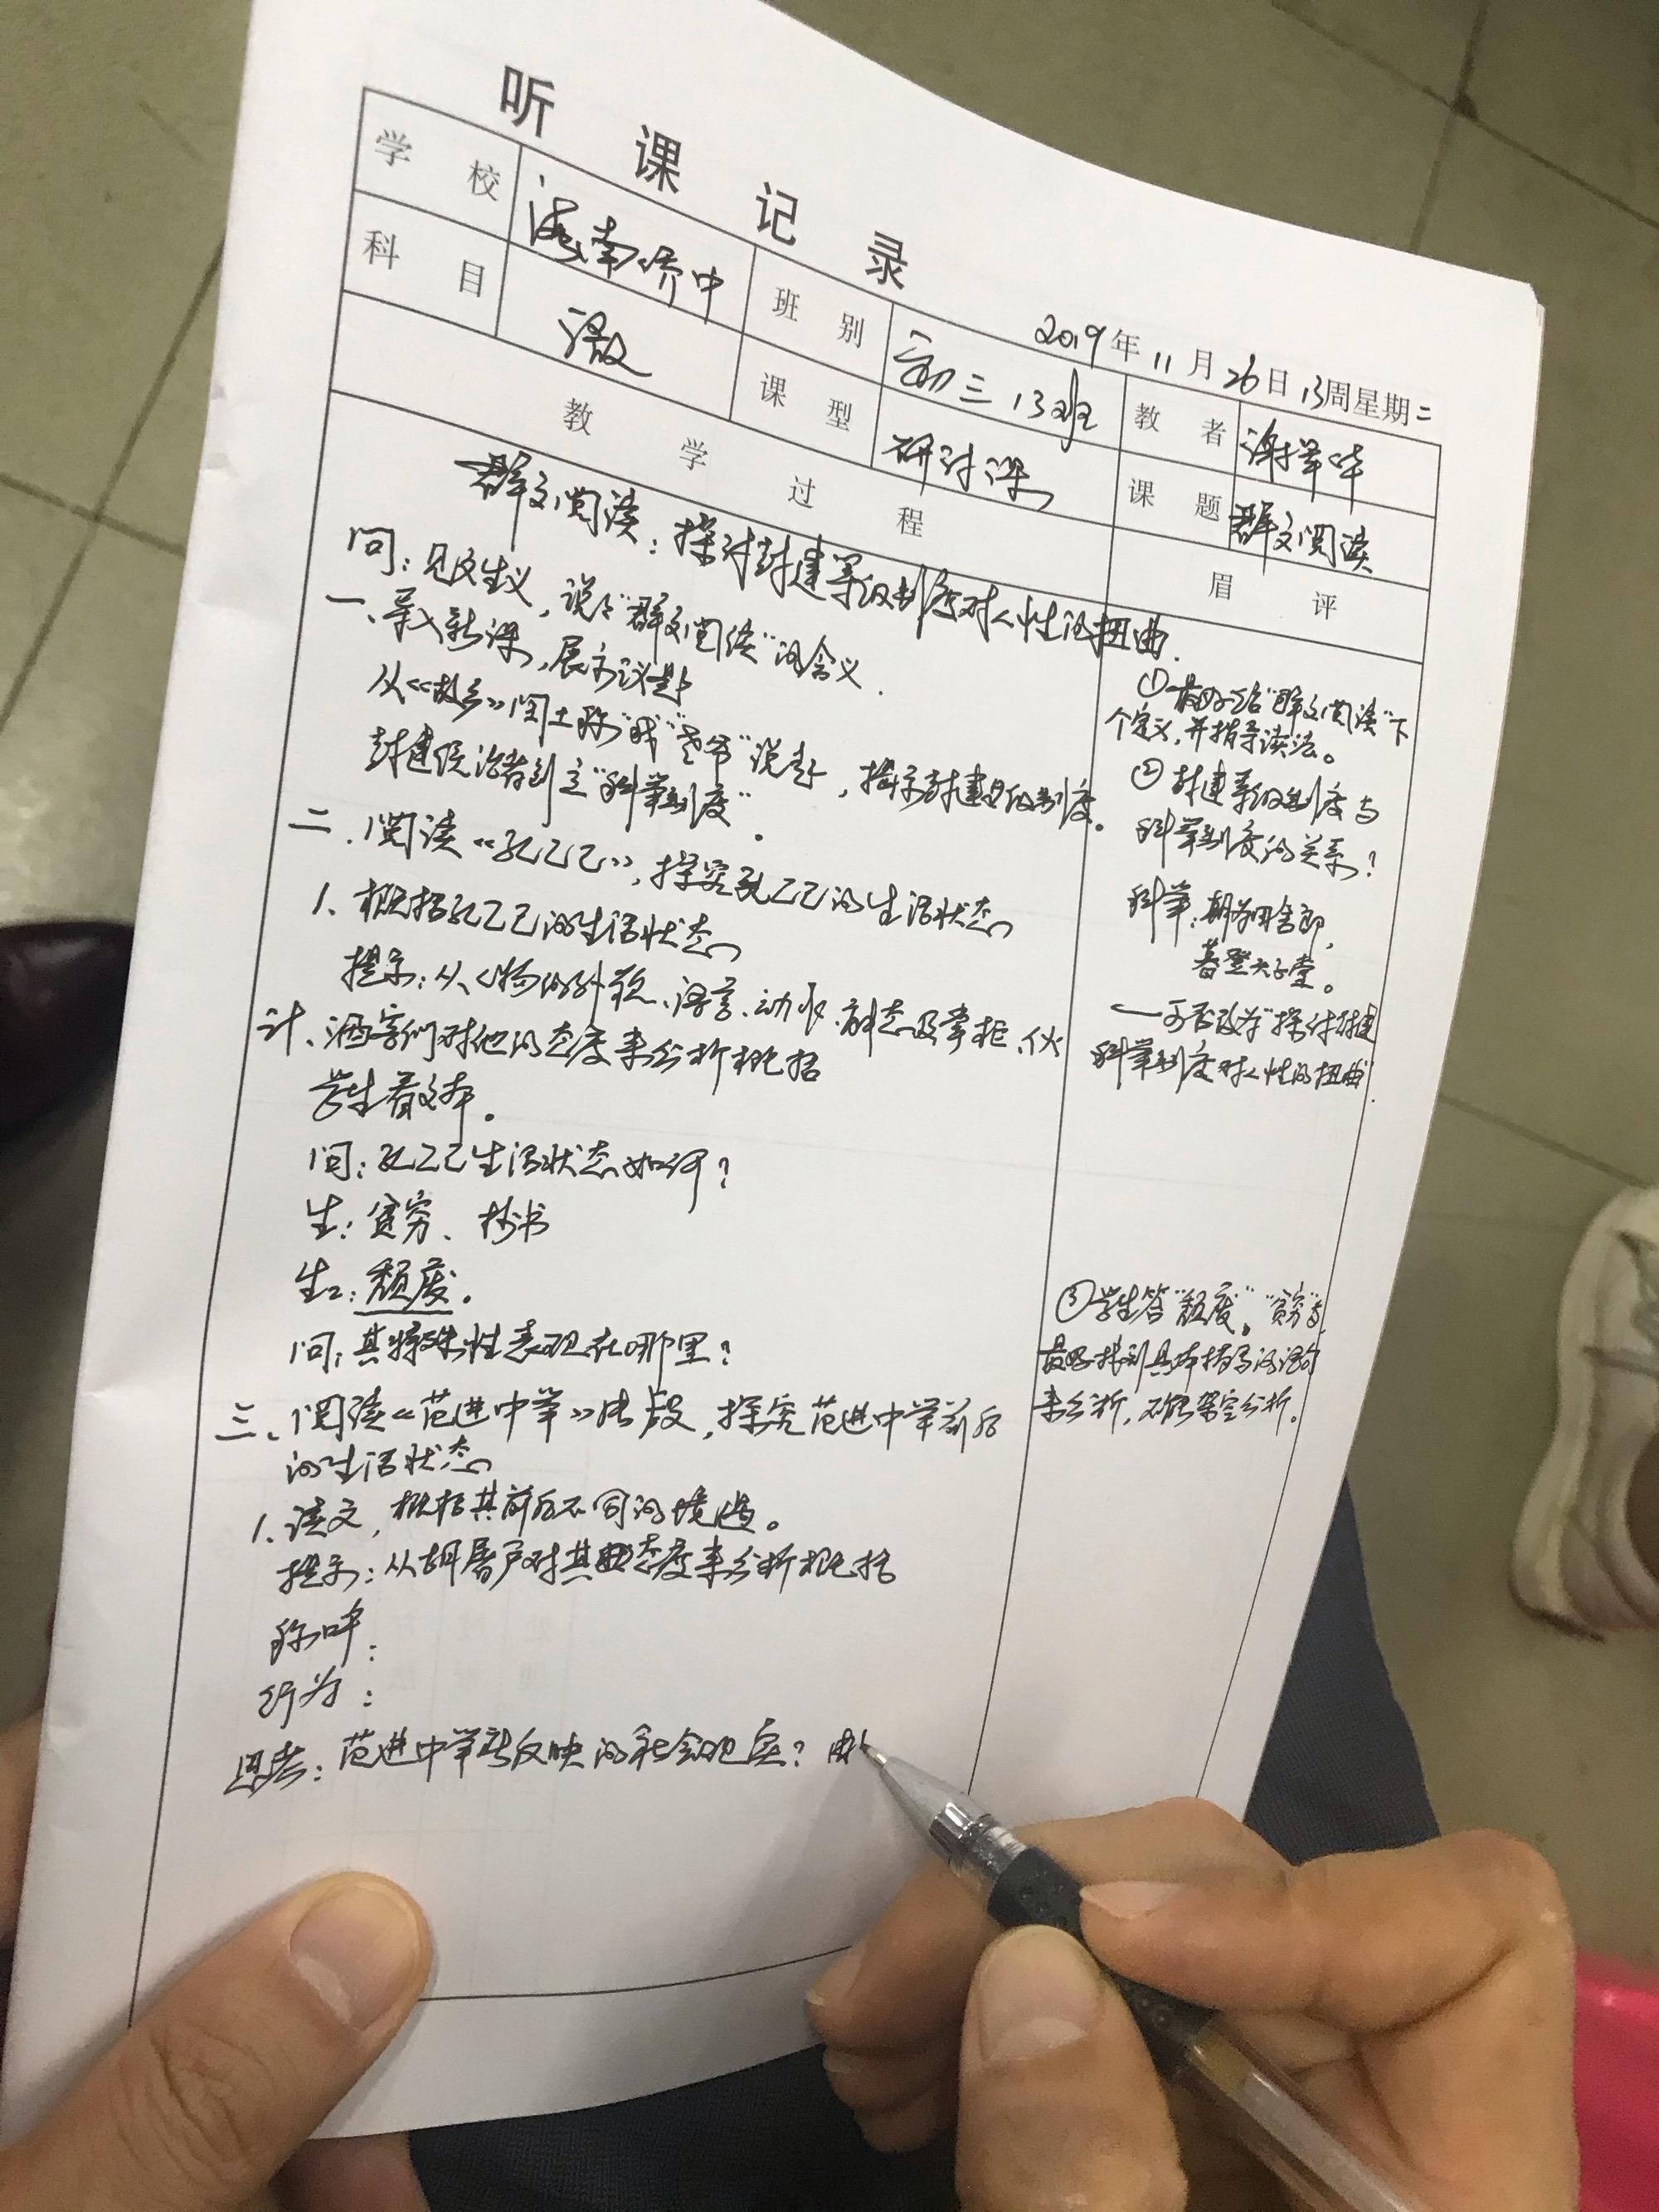 听课记录
2019年11月26日13周星期二
学校 海南侨中 班别 初三13班 教者
科目 语文 课型 研讨课 课题 群文阅读
教学过程 眉评
群文阅读：探讨封建等级制度对人性的扭曲.
问：见文生义，说说"群文阅读"的含义.
一、导入新课，展示议题
从《故乡》闰土称"我""老爷"说起，揭示封建等级制度。
封建统治者创立"科举制度"。
二.阅读《孔乙己》，探究孔乙己的生活状态
1、概括孔乙己的生活状态
提示：从人物的外貌、语言、动作、神态及掌柜、伙
计、酒客们对他的态度来分析概括
学生看文本。
问：孔乙己生活状态如何？
生：贫穷、抄书
生2：颓废。
问：其特殊性表现在哪里？
三、阅读《范进中举》片段，探究范进中举前后
的生活状态
1.读文，概括其前后不同的境遇。
提示：从胡屠户对其态度来分析概括
称呼：
行为：
思考：范进中举所反映的社会现实？
①最好给"群文阅读"下
个定义，并指导读法。
②封建等级制度与
科举制度的关系？
科举：朝为田舍郎，
暮登天子堂。
——可否改为"探讨封建
科举制度对人性的扭曲".
③学生答"颓废"、"贫穷"时,
最好找到具体描写的语句
来分析，不能架空分析。